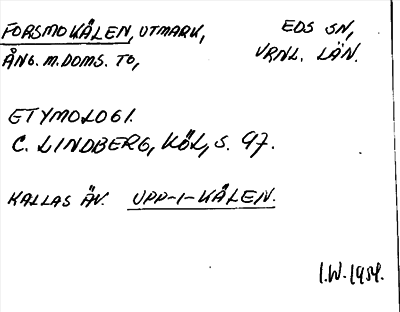 FORSMOKÅLEN, UTMARK, EDS SN,
ÅNG. M. DOMS. TO, VRNL. LÄN.
ETYMOLOGI.
C. LINDBERG, KÖL, S. 97.
KALLAS ÄV. UPP-I-KÅLEN.
I.W. 1954.